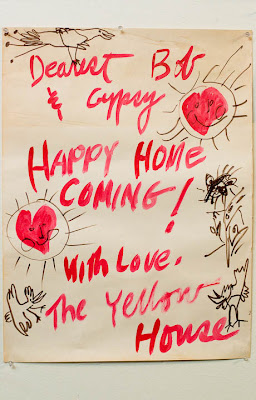 Dearest Bob
& Gypsy
HAPPY HOME
COMING!
With Love.
The Yellow
House